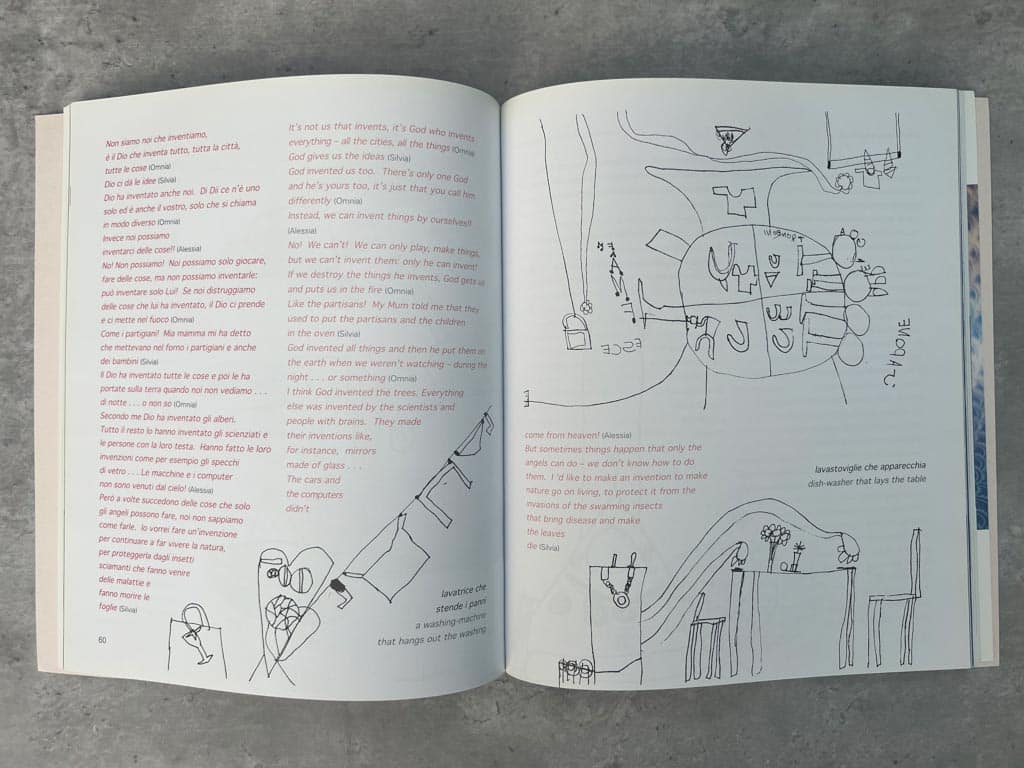 Non siamo noi che inventiamo,
è il Dio che inventa tutto, tutta la città,
tutte le cose (Omnia)
Dio ci dà le idee (Silvia)
Dio ha inventato anche noi. Di Dii ce n'è uno
solo ed è anche il vostro, solo che si chiama
in modo diverso (Omnia)
Invece noi possiamo
inventarci delle cose!! (Alessia)
No! Non possiamo! Noi possiamo solo giocare,
fare delle cose, ma non possiamo inventarle:
può inventare solo Lui! Se noi distruggiamo
delle cose che lui ha inventato, il Dio ci prende
e ci mette nel fuoco (Omnia)
Come i partigiani! Mia mamma mi ha detto
che mettevano nel forno i partigiani e anche
dei bambini (Silvia)
Il Dio ha inventato tutte le cose e poi le ha
portate sulla terra quando noi non vediamo . . .
di notte . . . o non so (Omnia)
Secondo me Dio ha inventato gli alberi.
Tutto il resto lo hanno inventato gli scienziati e
le persone con la loro testa. Hanno fatto le loro
invenzioni come per esempio gli specchi
di vetro . . . Le macchine e i computer
non sono venuti dal cielo! (Alessia)
Però a volte succedono delle cose che solo
gli angeli possono fare, noi non sappiamo
come farle. Io vorrei fare un'invenzione
per continuare a far vivere la natura,
per proteggerla dagli insetti
sciamanti che fanno venire
delle malattie e
fanno morire le
foglie (Silvia)
60
It's not us that invents, it's God who invents
everything – all the cities, all the things (Omnia)
God gives us the ideas (Silvia)
God invented us too. There's only one God
and he's yours too, it's just that you call him
differently (Omnia)
Instead, we can invent things by ourselves!!
(Alessia)
No! We can't! We can only play, make things,
but we can't invent them: only he can invent!
If we destroy the things he invents, God gets us
and puts us in the fire (Omnia)
Like the partisans! My Mum told me that they
used to put the partisans and the children
in the oven (Silvia)
God invented all things and then he put them on
the earth when we weren't watching – during the
night . . . or something (Omnia)
I think God invented the trees. Everything
else was invented by the scientists and
people with brains. They made
their inventions like,
for instance, mirrors
made of glass . . .
The cars and
the computers
didn't
lavatrice che
stende i panni
a washing-machine
that hangs out the washing
ESCE
come from heaven! (Alessia)
But sometimes things happen that only the
angels can do – we don't know how to do
them. I 'd like to make an invention to make
nature go on living, to protect it from the
invasions of the swarming insects
that bring disease and make
the leaves
die (Silvia)
lavastoviglie che apparecchia
dish-washer that lays the table